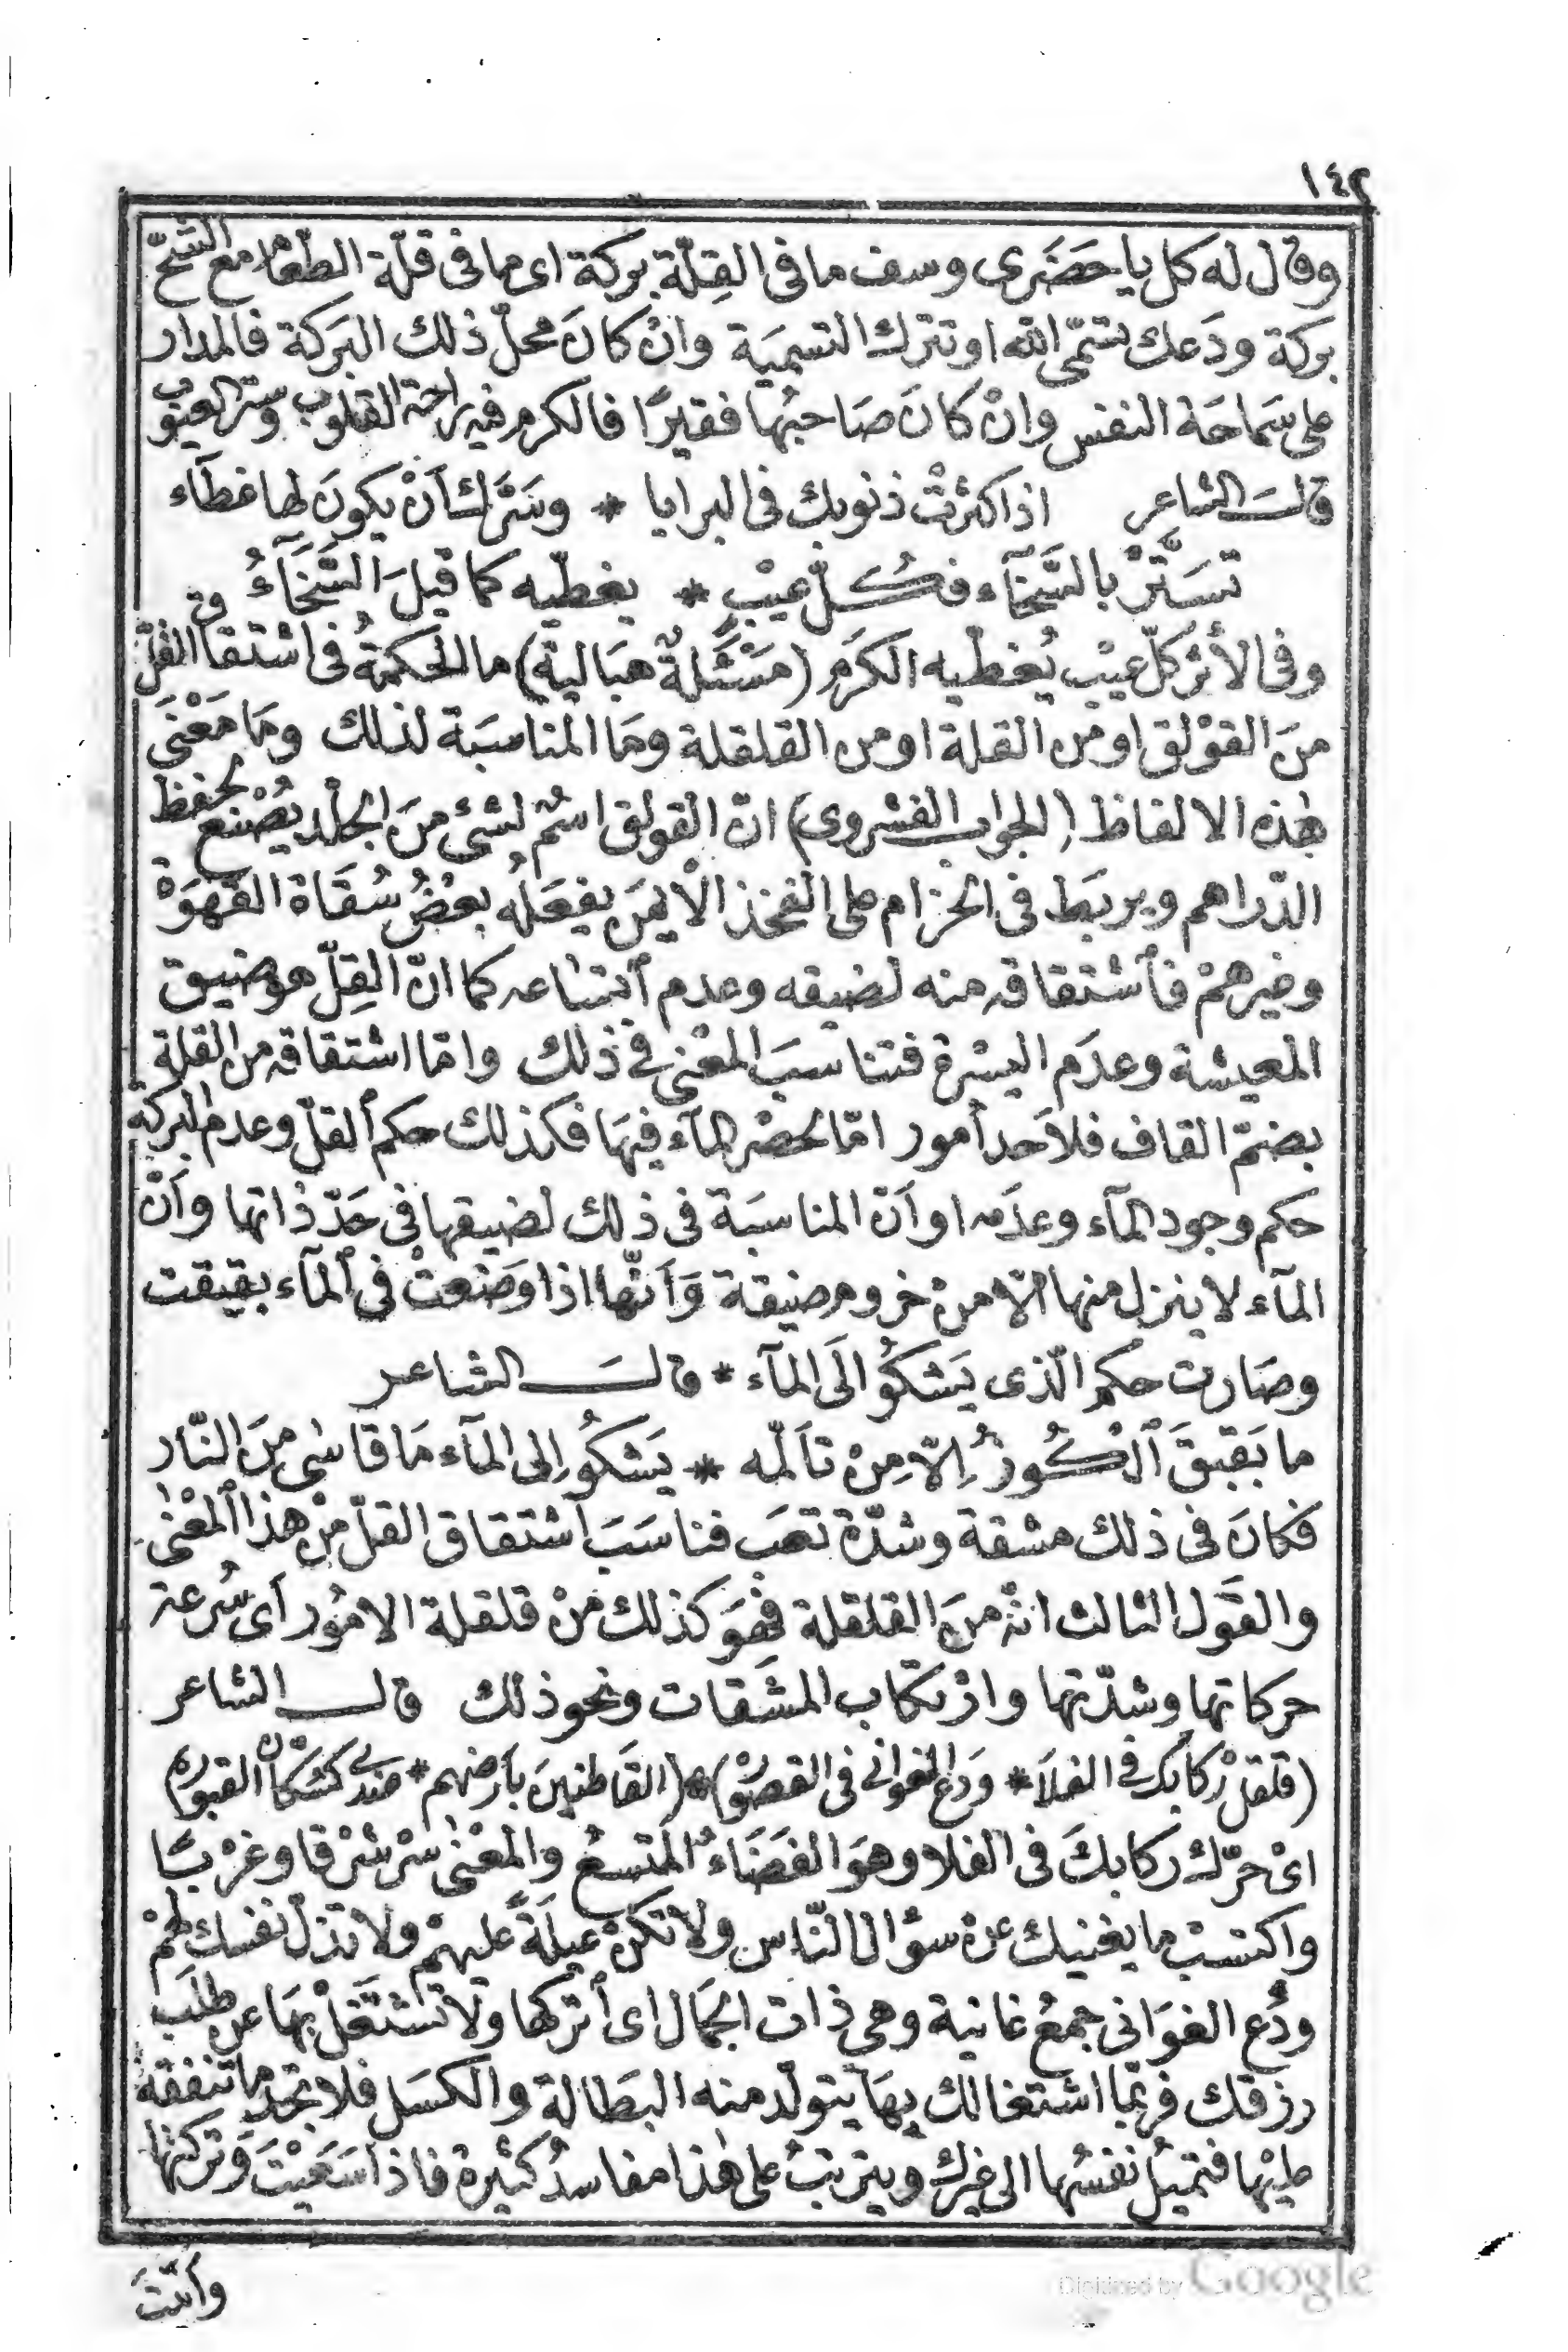 ١٤٢
وقال له كل يا حضرى وسف ما فى القِلّة بركة اى ما فى قلّة الطّعام مع الشّحّ
بركة ودَعك تسمّى الله او تترك التسميَة وانْ كانَ محلّ ذلك البَركة فالمدار
على سَماحَة النفس وانْ كانَ صَاحبُها فقيرًا فالكرم فيه راحة القلوب وستر العيوب
قالَ الشاعر اذا كثرتْ ذنوبك فى البرايا * وسَرَّك أنْ يكونَ لها غطآء
تسَتَّرْ بالسَّخآء فكُلّ عيْبٍ * يغطّيه كما قيلَ السَّخَآءُ
وفى الأثر كلّ عيْب يُغطّيه الكرَم (مَسْئَلةٌ هبَالية) ما الحكمةُ فى اشتقاق القلّ
منَ القوْلق او من القلة او من القلقلة ومَا المناسبَة لذلك ومَا مَعْنَى
هٰذه الالفاظ (الجواب الفشروى) انّ القولق اسْمٌ لشئ منَ الجلد يُصْنع لحفظ
الدّراهم ويربَط فى الحزام على الفخذ الأيمَن يفعَلهُ بعْضُ سُقَاة القَهوَة
وغيرهمْ فأشتقاقه منه لضيقه وعدم أتساعه كما انّ القِلّ هو ضيق
المعيشة وعدَم اليسْرة فتناسبَ المعْنى فى ذلك وامّا اشتقاقه من القلة
بضمّ القاف فلاَحد أمور امّا لحصْر المآء فيهَا فكذلك حكم ألقلّ وعدم البركة
حكم وجود المآء وعدَمه او أنّ المناسبَة فى ذلك لضيقها فى حَدّ ذاتها وأنّ
المآء لا ينزل منها الاّ منْ خروم ضيقة وَأنّها اذا وضعتْ فى ألمآء بقبقت
وصَارت حكم الّذى يَشكوُ الَى المآء * قالَ الشاعر
ما بَقبَقَ ٱلْكُوزُ إلاّ مِنْ تألمه * يَشكُو إلى المآء مَا قاسٰى مِنَ النّار
فكانَ فى ذلك مشقة وشدّة تعَب فناسَبَ أشتقاق القلّ منْ هذا ألمعْنٰى
والقَول الثالث انّه منَ القلقلة فهْوَ كذلك منْ قلقلة الامُور أى سُرعة
حركاتها وشدّتها وارْتكاب المشَقات ونحو ذلك قال الشاعر
(قلقلْ ركابك فى الفلاَ * ودَع الغوانى فى القصُورْ) * (القَاطنينَ بأرضهم * عندى كسُكّان القبُورْ)
اىْ حرّك ركابكَ فى الفلا وهوَ الفَضَاءُ المُتسعُ والمعْنٰى سرْ شرْقا وغرْبًا
واكتسبْ ما يغنيك عنْ سؤال النّاس ولا تكنْ عيلَةً عليهمْ ولا تذلّ نفسك لهمْ
ودَع الغوَانى جمعُ غانية وهى ذات الجَمال اى أتركها ولا تشتغلْ بهَا عن طلَب
رزقك فربّما اشتغالك بهَا يتولّد منه البطَالة والكسَل فلا تجد ما تنفقهُ
عليْها فتميلُ نفسُها الى غيرك ويترتبُ على هٰذا مفاسدُ كثيرة فاذا سَعَيْتَ وَتركتها
وأتَتَ
Digitized by Google